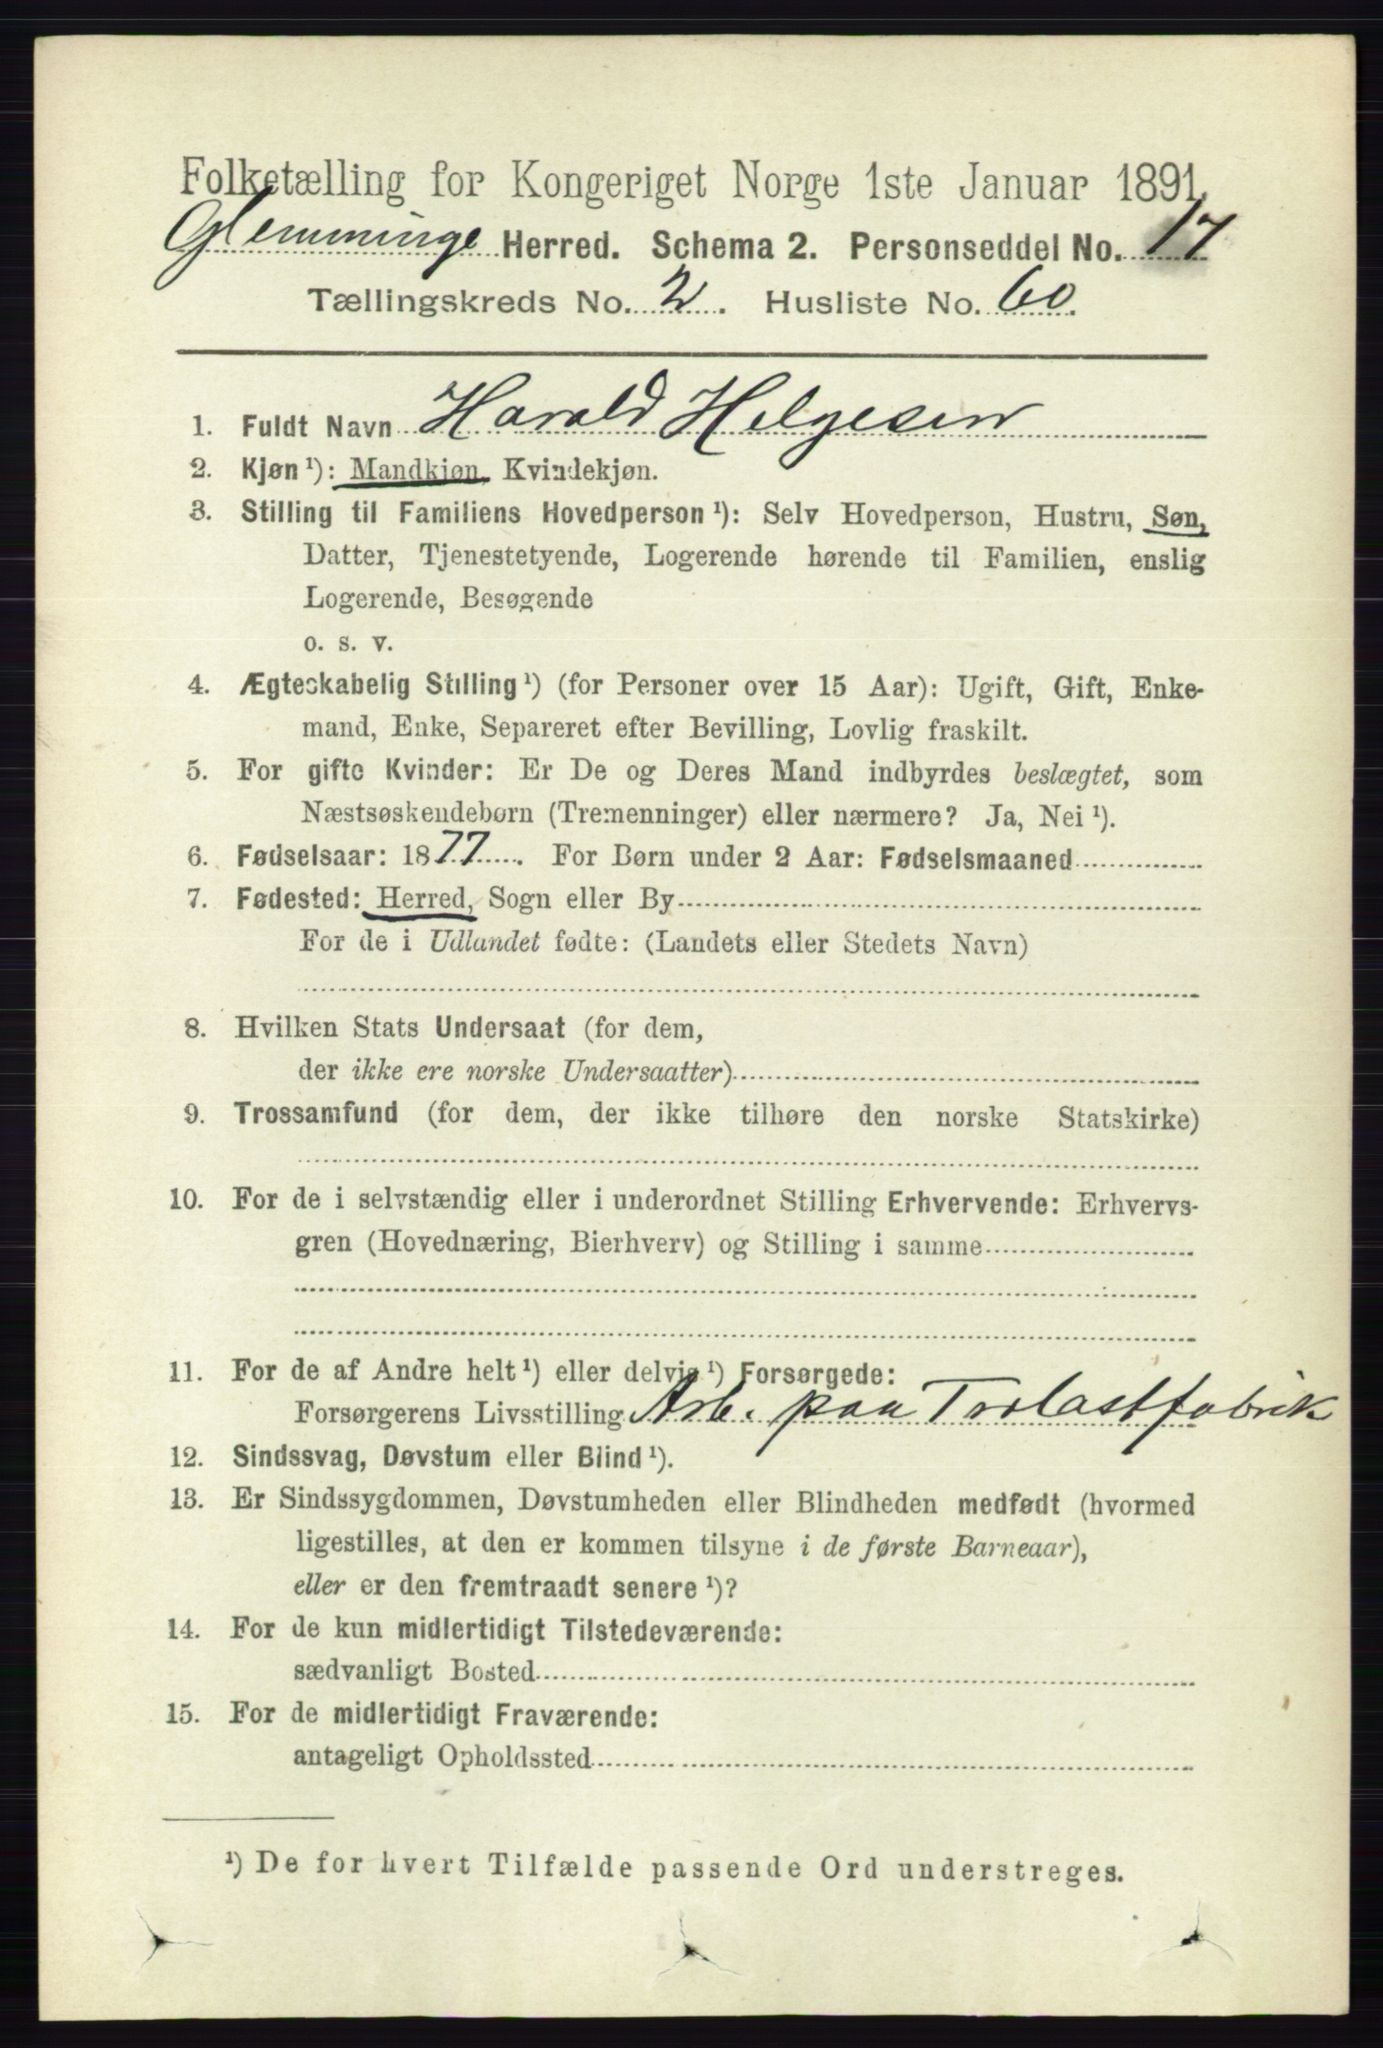 Folketælling for Kongeriget Norge 1ste Januar 1891.
Glemminge Herred. Schema 2. Personseddel No. 17
Tællingskreds No. 2. Husliste No. 60.
1. Fuldt Navn Harald Helgesen
2. Kjøn ¹): Mandkjøn, Kvindekjøn.
3. Stilling til Familiens Hovedperson ¹): Selv Hovedperson, Hustru, Søn,
Datter, Tjenestetyende, Logerende hørende til Familien, enslig
Logerende, Besøgende
o. s. v.
4. Ægteskabelig Stilling ¹) (for Personer over 15 Aar): Ugift, Gift, Enke-
mand, Enke, Separeret efter Bevilling, Lovlig fraskilt.
5. For gifte Kvinder: Er De og Deres Mand indbyrdes beslægtet, som
Næstsøskendebørn (Tremenninger) eller nærmere? Ja, Nei ¹).
6. Fødselsaar: 1877. For Børn under 2 Aar: Fødselsmaaned
7. Fødested: Herred, Sogn eller By
For de i Udlandet fødte: (Landets eller Stedets Navn)
8. Hvilken Stats Undersaat (for dem,
der ikke ere norske Undersaatter)
9. Trossamfund (for dem, der ikke tilhøre den norske Statskirke)
10. For de i selvstændig eller i underordnet Stilling Erhvervende: Erhvervs-
gren (Hovednæring, Bierhverv) og Stilling i samme
11. For de af Andre helt ¹) eller delvis ¹) Forsørgede:
Forsørgerens Livsstilling Arb. paa Trælastfabrik
12. Sindssvag, Døvstum eller Blind ¹).
13. Er Sindssygdommen, Døvstumheden eller Blindheden medfødt (hvormed
ligestilles, at den er kommen tilsyne i de første Barneaar),
eller er den fremtraadt senere ¹)?
14. For de kun midlertidigt Tilstedeværende:
sædvanligt Bosted
15. For de midlertidigt Fraværende:
antageligt Opholdssted
¹) De for hvert Tilfælde passende Ord understreges.